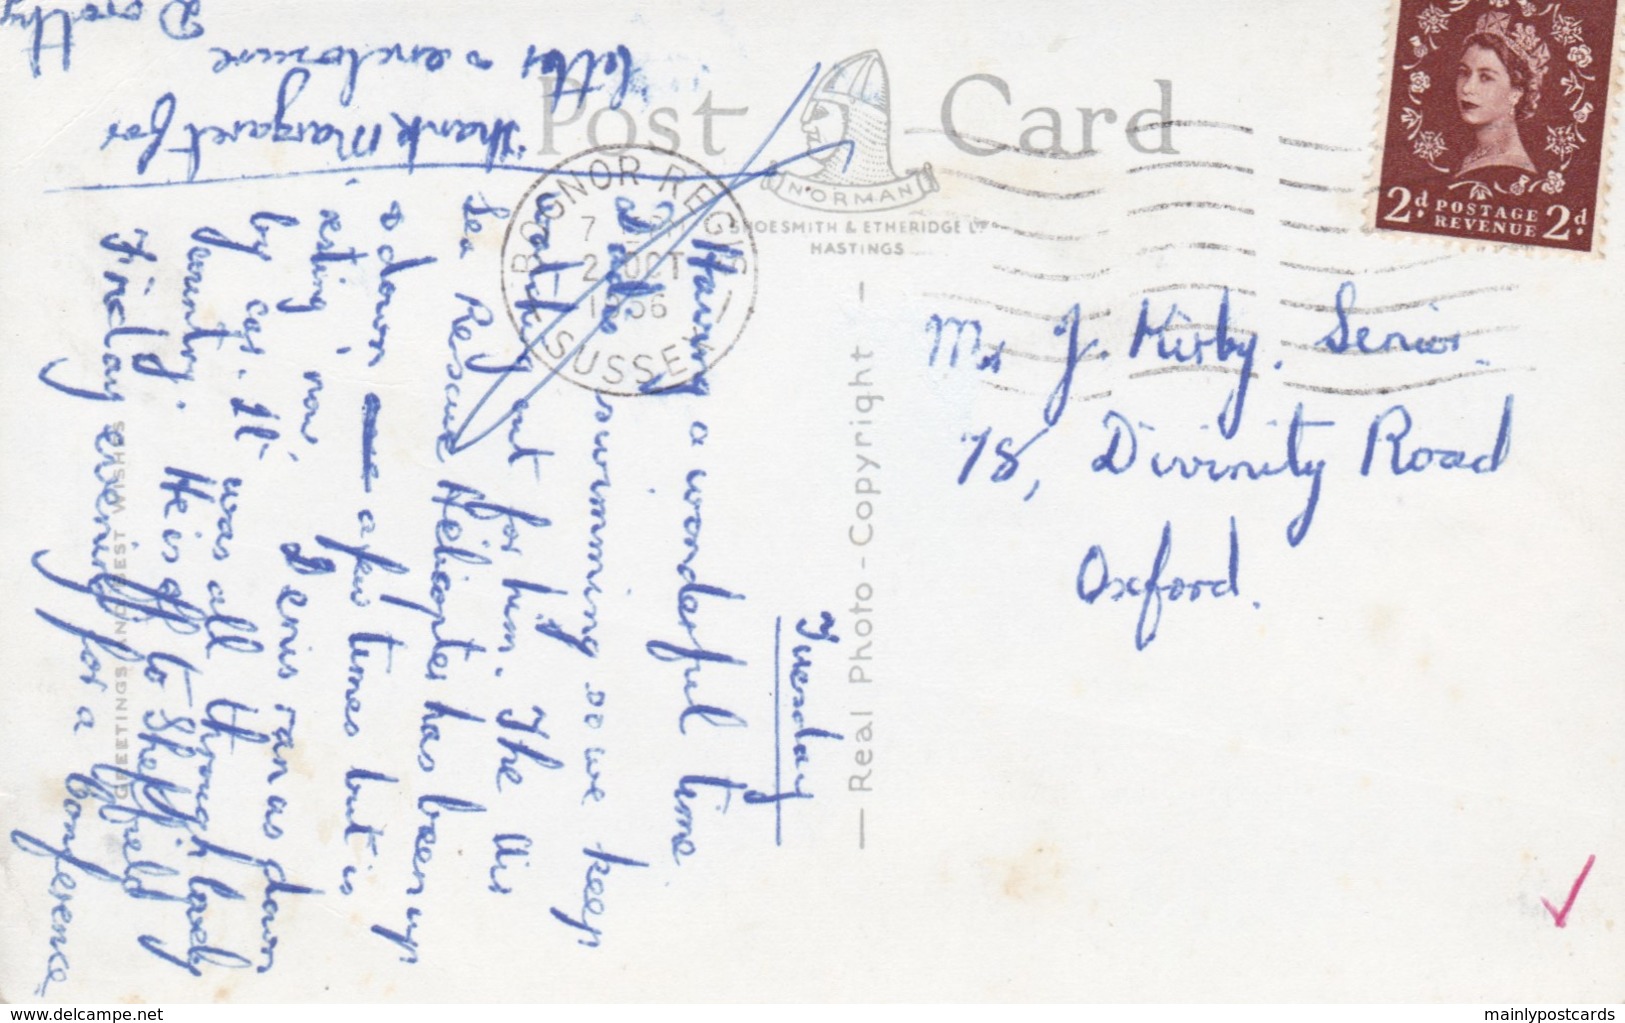 Post Card
NORMAN
SHOESMITH & ETHERIDGE LTD
HASTINGS
BOGNOR REGIS
2 OCT
1956
SUSSEX
2d POSTAGE REVENUE 2d
— Real Photo - Copyright —
GREETINGS AND BEST WISHES
Mr J. Kirby. Senior.
78, Divinity Road
Oxford.
Tuesday
Having a wonderful time
swimming so we keep
watching out for him. The Air
Sea Rescue Helicopter has been up
& down a few times but is
resting now. Denis ran us down
by car. It was all through lovely
country. He is off to Sheffield
Friday evening for a Conference
thank Margaret for
letter & enclosure
Dorothy
mainlypostcards.ecrater.co.uk
mainlypostcards